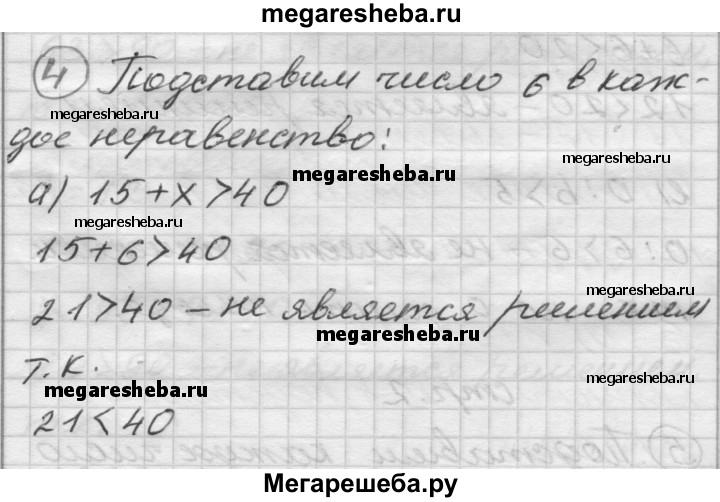 megaresheba.ru
④ Подставим число 6 в каж-
megaresheba.ru
дое неравенство:
megaresheba.ru
megaresheba.ru
а) 15+х>40
megaresheba.ru
15+6>40
megaresheba.ru
21>40 – не является решением
megaresheba.ru
т.к.
megaresheba.ru
megaresheba.ru
21<40
Мегарешеба.ру